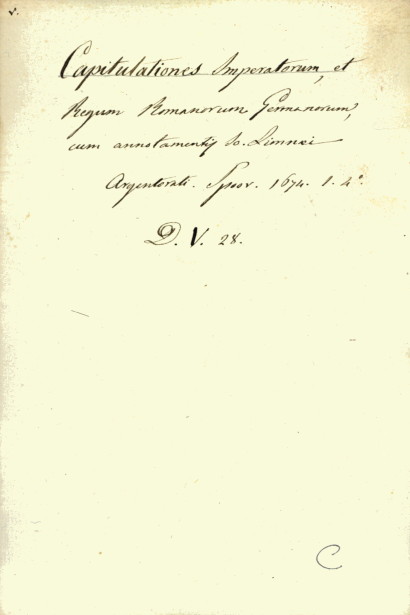 v.
Capitulationes Imperatorum, et
Regum Romanorum Germanorum,
cum annotamentis Jo. Limnæi
Argentorati. Spoor. 1674. 1. 4º.
D. V. 28.
C